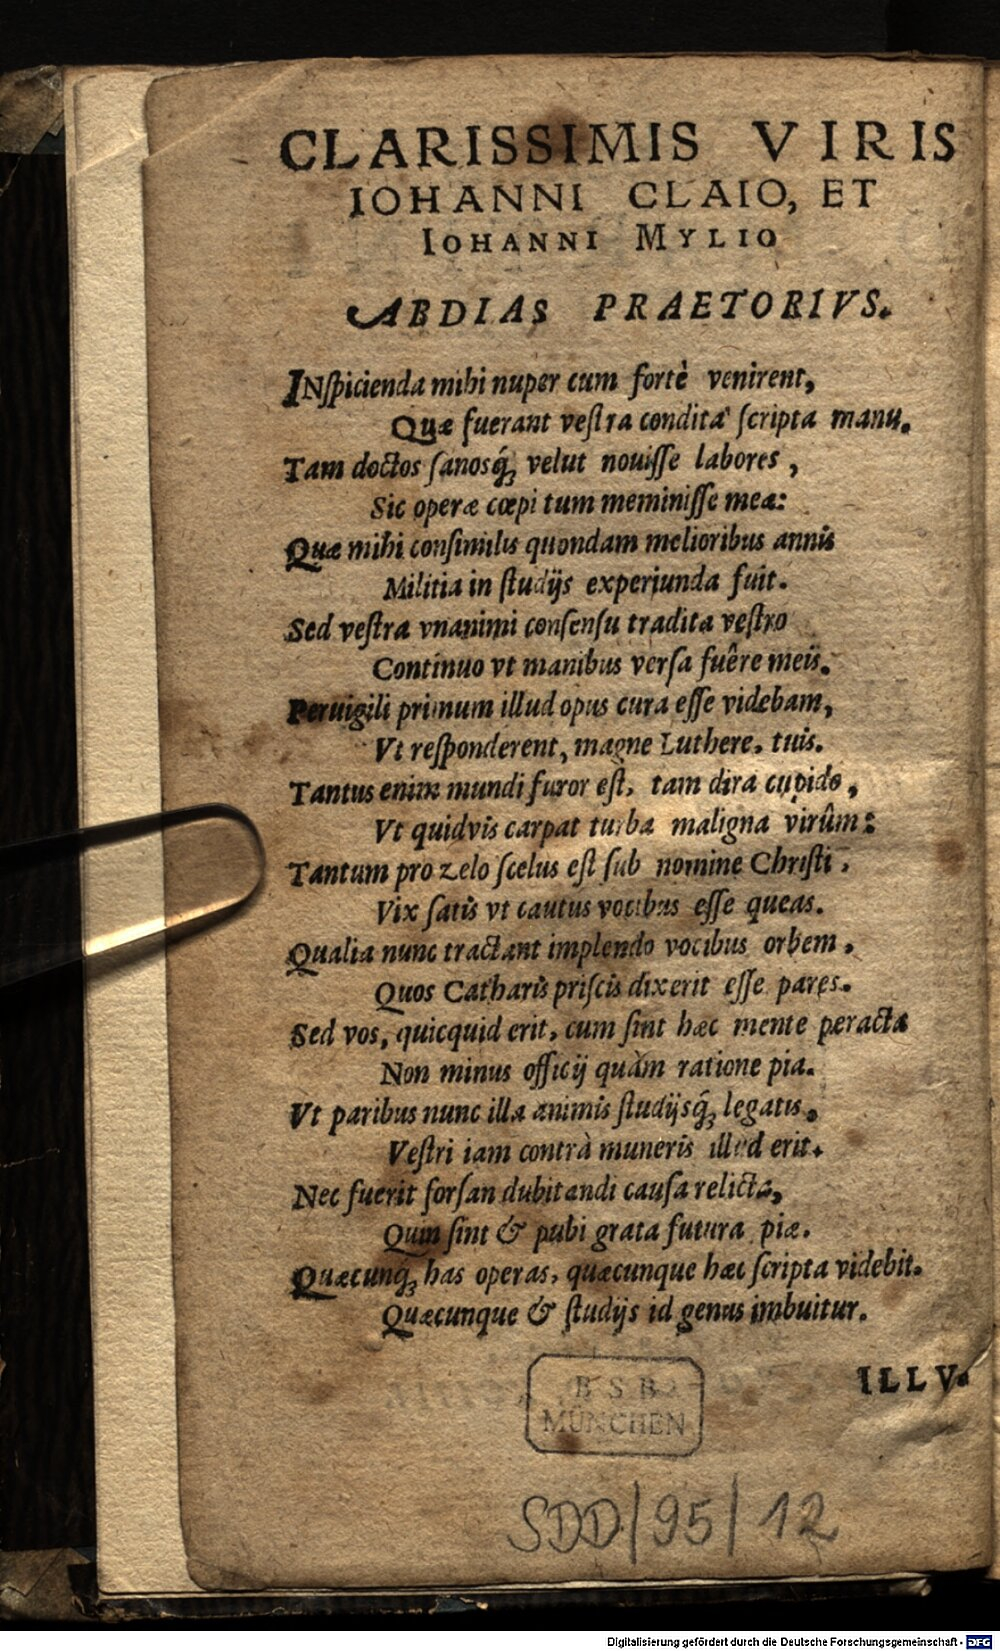 CLARISSIMIS VIRIS
IOHANNI CLAIO, ET
IOHANNI MYLIO
ABDIAS PRAETORIVS.
INſpicienda mihi nuper cum fortè venirent,
Quæ fuerant veſtra condita ſcripta manu.
Tam doctos ſanosq́ꝫ velut nouiſſe labores,
Sic operæ cœpi tum meminiſſe meæ:
Quæ mihi conſimilis quondam melioribus annis
Militia in ſtudijs experiunda fuit.
Sed veſtra vnanimi conſenſu tradita veſtro
Continuo vt manibus verſa fuêre meis.
Peruigili primum illud opus cura eſſe videbam,
Vt reſponderent, magne Luthere, tuis.
Tantus enim mundi furor eſt, tam dira cupido,
Vt quidvis carpat turba maligna virûm:
Tantum pro zelo ſcelus eſt ſub nomine Chriſti,
Vix ſatis vt cautus vocibus eſſe queas.
Qualia nunc tractant implendo vocibus orbem,
Quos Catharis priſcis dixerit eſſe pares.
Sed vos, quicquid erit, cum ſint hæc mente peracta
Non minus officij quàm ratione pia.
Vt paribus nunc illa animis ſtudijsq́ꝫ legatis,
Veſtri iam contrà muneris illud erit.
Nec fuerit forſan dubitandi cauſa relicta,
Quin ſint & pubi grata futura piæ.
Quæcunq́ꝫ has operas, quæcunque hæc ſcripta videbit.
Quæcunque & ſtudijs id genus imbuitur.
ILLV-
BSB
MÜNCHEN
SDD/95/12
Digitalisierung gefördert durch die Deutsche Forschungsgemeinschaft - DFG